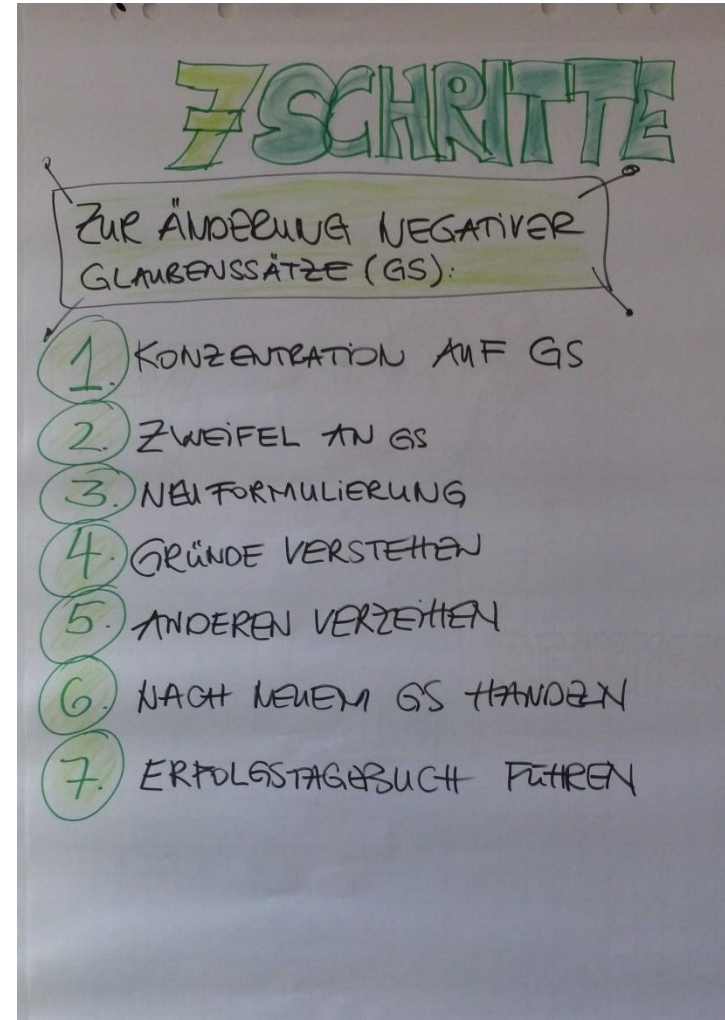 7 SCHRITTE
ZUR ÄNDERUNG NEGATIVER
GLAUBENSSÄTZE (GS):
1. KONZENTRATION AUF GS
2. ZWEIFEL AN GS
3. NEUFORMULIERUNG
4. GRÜNDE VERSTEHEN
5. ANDEREN VERZEIHEN
6. NACH NEUEM GS HANDELN
7. ERFOLGSTAGEBUCH FÜHREN